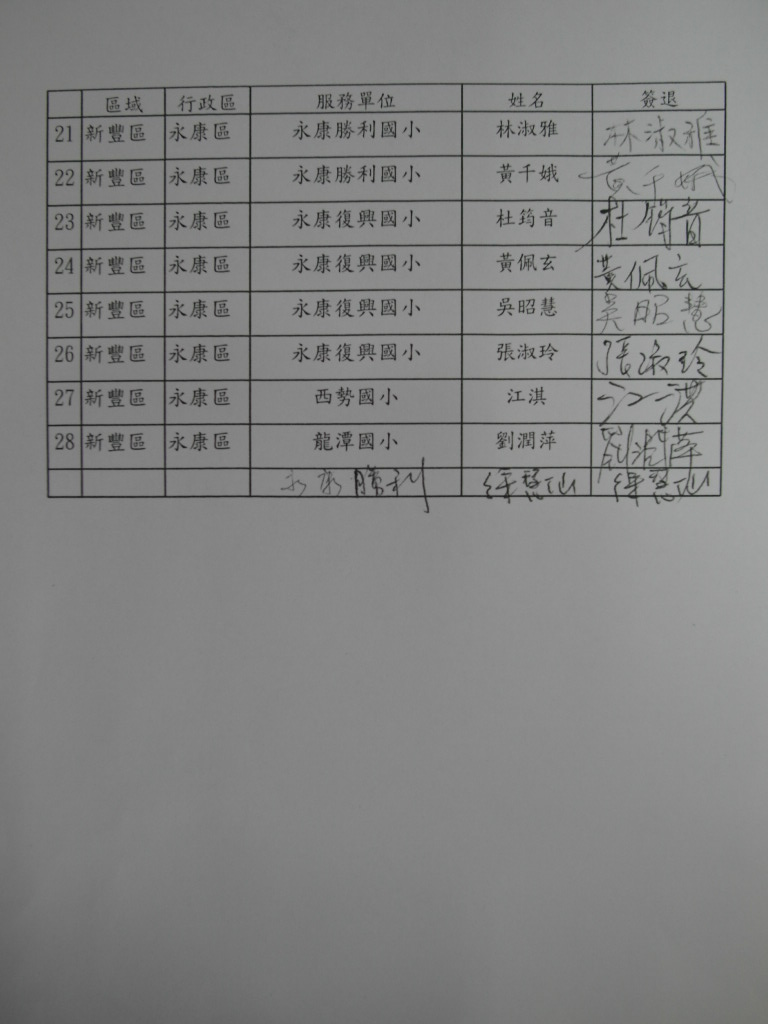 區域 行政區 服務單位 姓名 簽退
21 新豐區 永康區 永康勝利國小 林淑雅 林淑雅
22 新豐區 永康區 永康勝利國小 黃千娥 黃千娥
23 新豐區 永康區 永康復興國小 杜筠音 杜筠音
24 新豐區 永康區 永康復興國小 黃佩玄 黃佩玄
25 新豐區 永康區 永康復興國小 吳昭慧 吳昭慧
26 新豐區 永康區 永康復興國小 張淑玲 張淑玲
27 新豐區 永康區 西勢國小 江淇 江淇
28 新豐區 永康區 龍潭國小 劉潤萍 劉潤萍
永康勝利